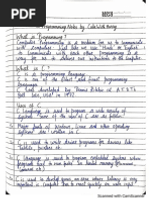 Programming Notes by CodeWithHarry
What is Programming?
Computer Programming is a medium for us to communicate
with computers. Just like we use Hindi or English
to communicate with each other, Programming is a
way for us to deliver our instructions to the computer.
What is C?
C is a programming language.
C is one of the oldest and finest programming
languages.
C was developed by Dennis Ritchie at AT&T's
Bell Labs, USA in 1972.
Uses of C
C language is used to program a wide variety of
systems. Some of the uses of C are as follows:
Major parts of Windows, Linux and other operating
systems are written in C.
C is used to write driver programs for devices like
Tablets, printers etc.
C language is used to program embedded systems where
programs need to run faster in limited memory
C is used to develop games, an area where latency is
very important i.e. Computer has to react quickly on user input
Scanned with CamScanner